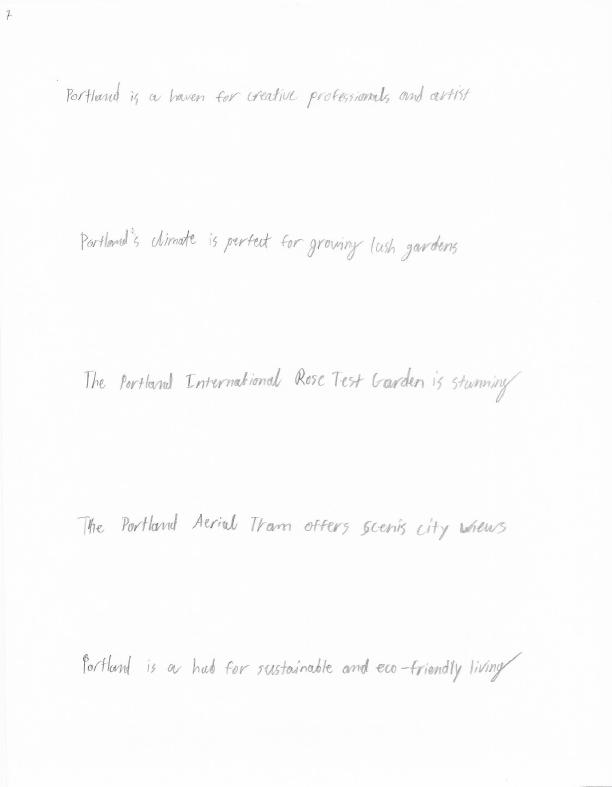 7
Portland is a haven for creative professionals and artist
Portland's climate is perfect for growing lush gardens
The Portland International Rose Test Garden is stunning
The Portland Aerial Tram offers scenis city views
Portland is a hub for sustainable and eco-friendly living